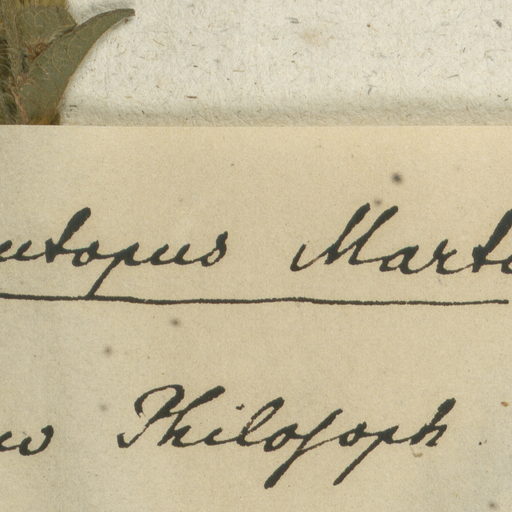 utopus Mart
w Philosoph